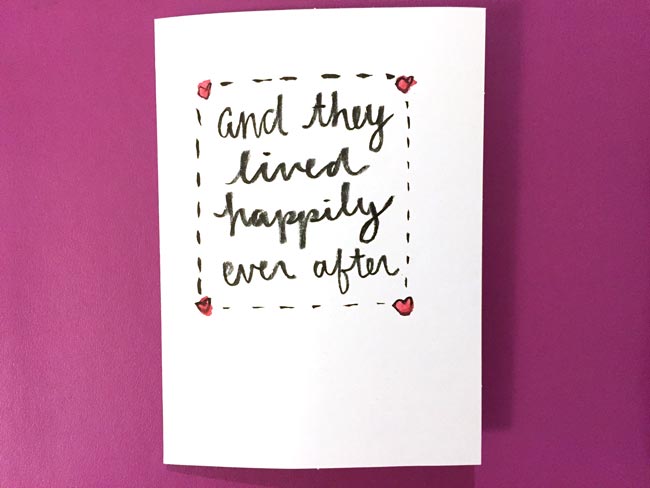 and they
lived
happily
ever after